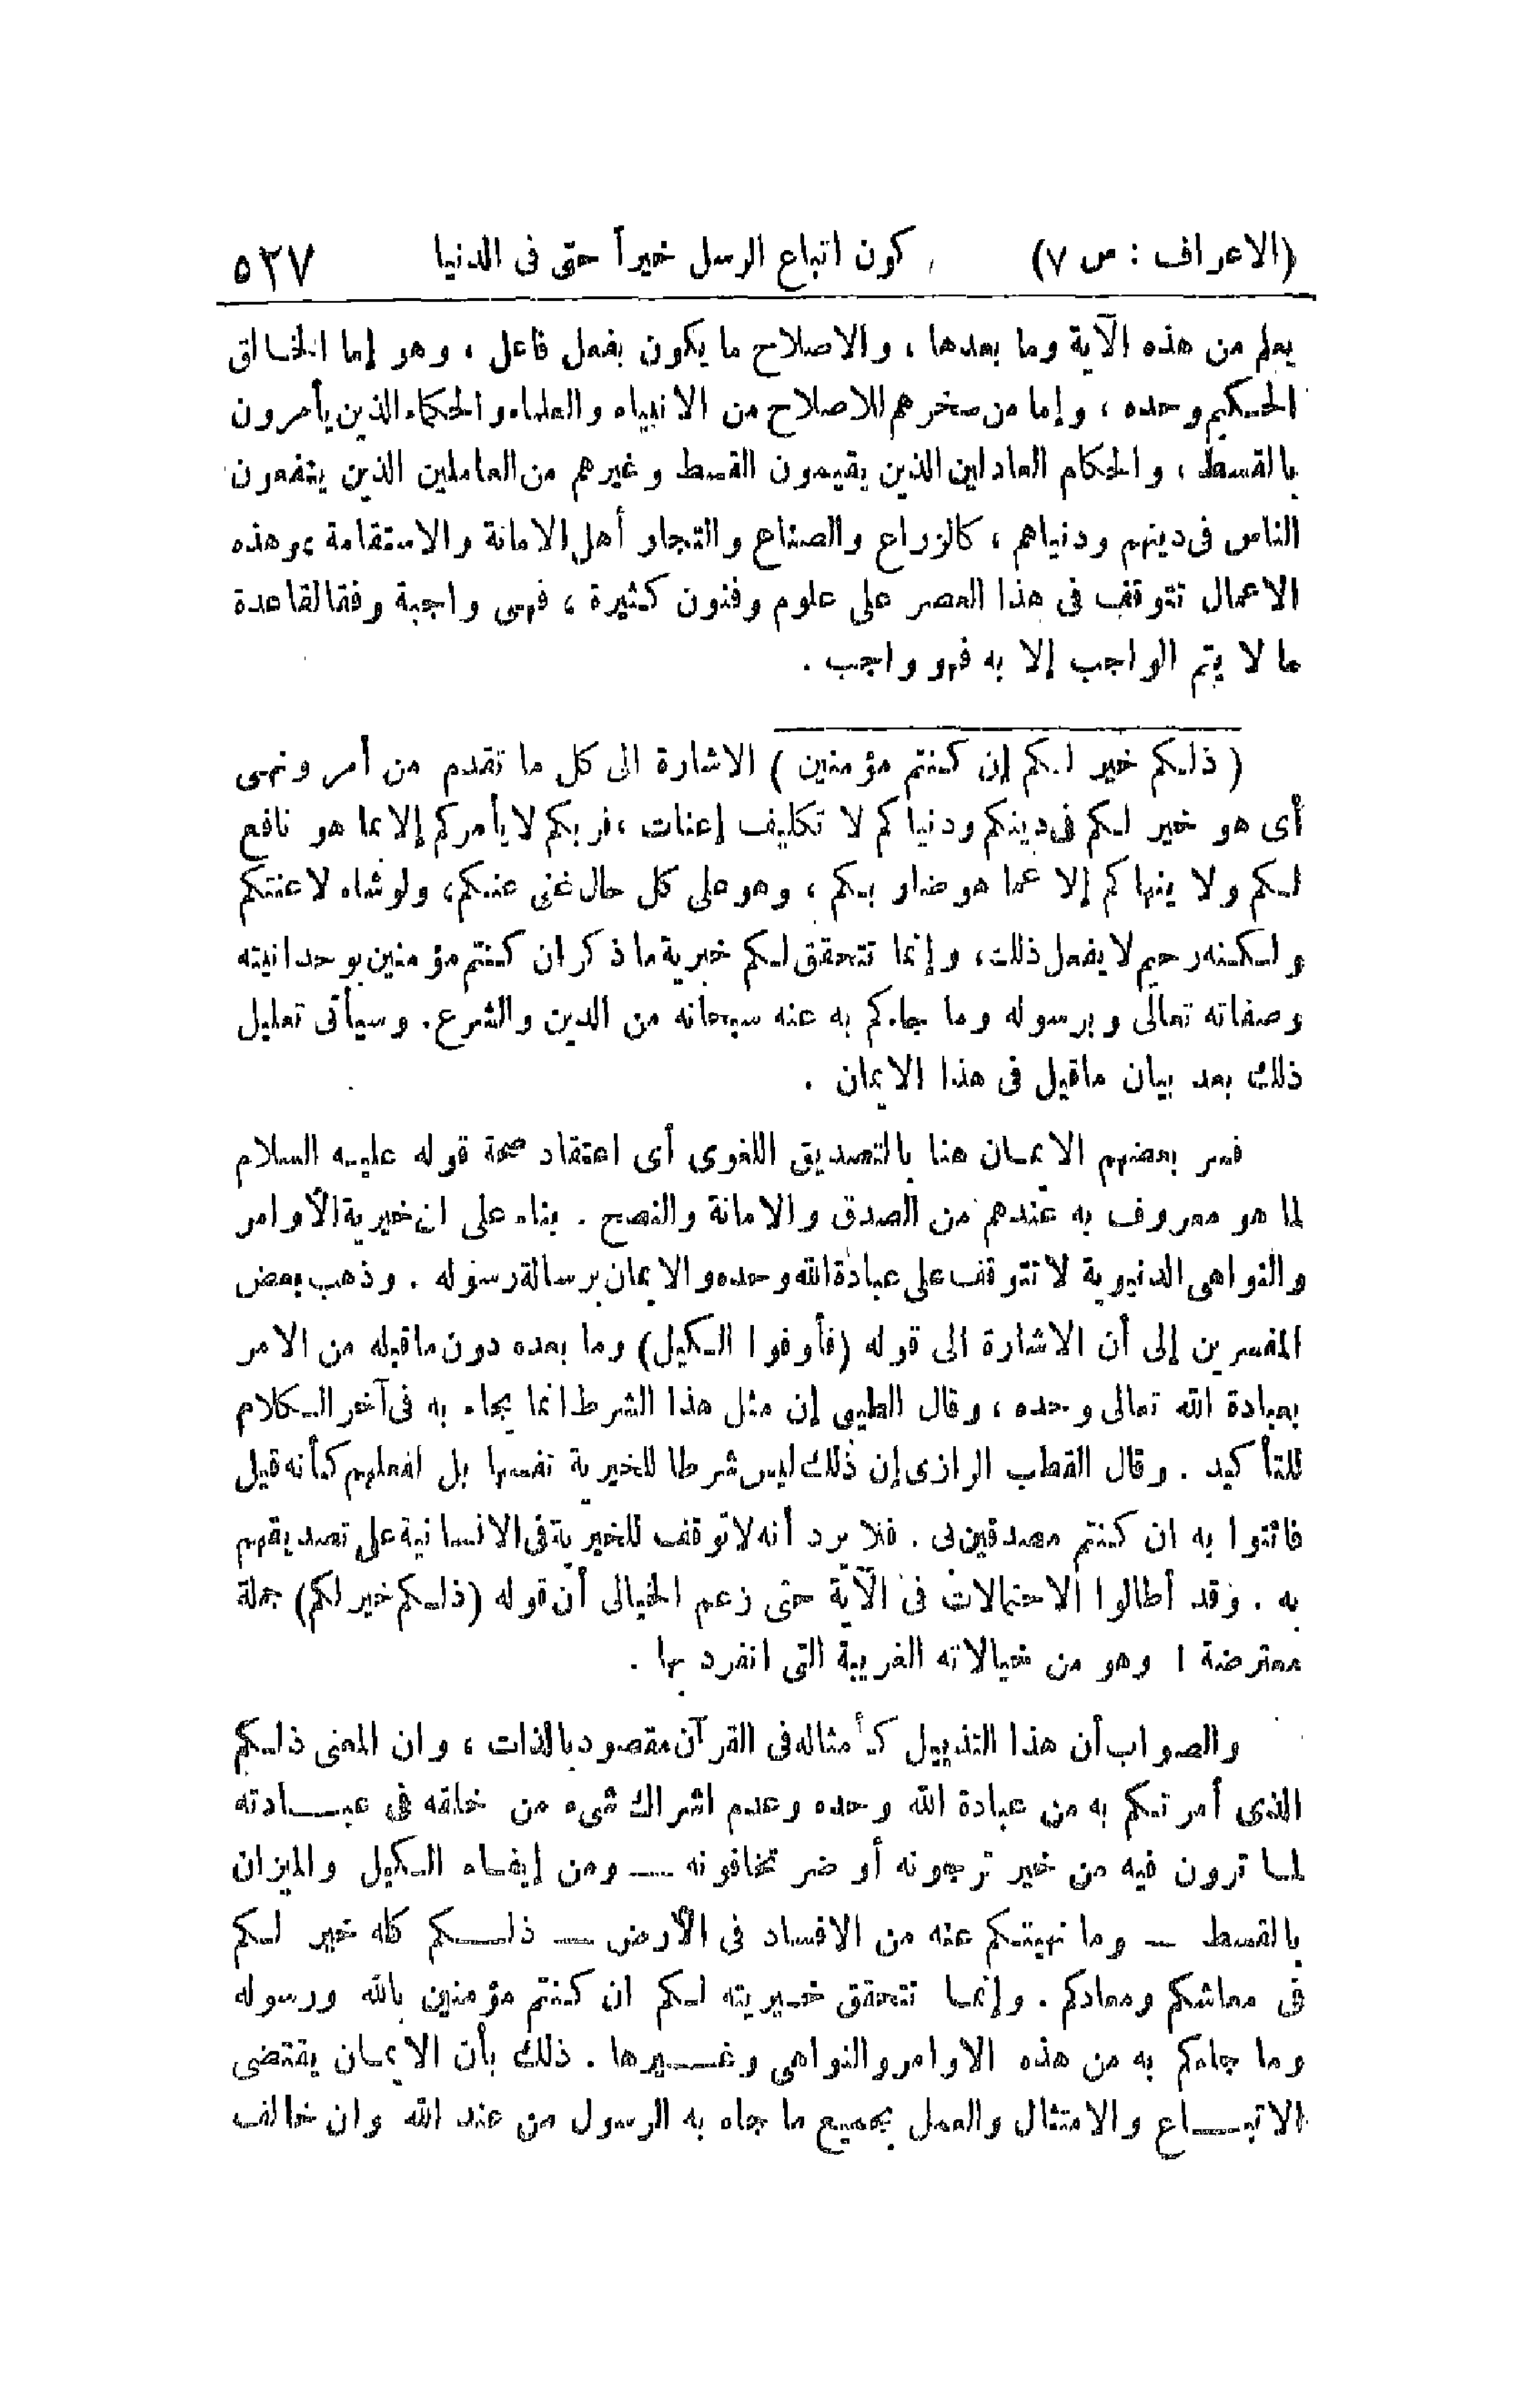 (الاعراف : س ٧) كون اتباع الرسل خيراً حتى فى الدنيا ٥٢٧
يعلم من هذه الآية وما بعدها ، والاصلاح ما يكون بفعل فاعل ، وهو إما الخالق
الحكيم وحده ، وإما من سخرهم للاصلاح من الانبياء والعلماء والحكماء الذين يأمرون
بالقسط ، والحكام العادلين الذين يقيمون القسط وغيرهم من العاملين الذين ينفعون
الناس فى دينهم ودنياهم ، كالزراع والصناع والتجار أهل الامانة والاستقامة ، وهذه
الاعمال تتوقف فى هذا العصر على علوم وفنون كثيرة ، فهى واجبة وفقا لقاعدة
ما لا يتم الواجب إلا به فهو واجب .
( ذلكم خير لكم إن كنتم مؤمنين ) الاشارة الى كل ما تقدم من أمر ونهى
أى هو خير لكم فى دينكم ودنياكم لا تكليف إعنات ، فربكم لا يأمركم إلا بما هو نافع
لكم ولا ينهاكم إلا عما هو ضار بكم ، وهو على كل حال غنى عنكم، ولو شاء لاعنتكم
ولكنه رحيم لا يفعل ذلك، وإنما تتحقق لكم خيرية ما ذكر ان كنتم مؤمنين بوحدانيته
وصفاته تعالى وبرسوله وما جاءكم به عنه سبحانه من الدين والشرع. وسيأتى تعليل
ذلك بعد بيان ماقيل فى هذا الايمان .
فسر بعضهم الايمان هنا بالتصديق اللغوى أى اعتقاد صحة قوله عليه السلام
لما هو معروف به عندهم من الصدق والامانة والنصح . بناء على ان خيرية الأوامر
والنواهى الدنيوية لا تتوقف على عبادة الله وحده والايمان برسالة رسوله . وذهب بعض
المفسرين إلى أن الاشارة الى قوله (فأوفوا الكيل) وما بعده دون ماقبله من الامر
بعبادة الله تعالى وحده ، وقال الطيبى إن مثل هذا الشرط انما يجاء به فى آخر الكلام
للتأكيد . وقال القطب الرازى إن ذلك ليس شرطا للخيرية نفسها بل لفعلهم كأنه قيل
فائتوا به ان كنتم مصدقين لى . فلا يرد أنه لا توقف للخيرية فى الانسانية على تصديقهم
به . وقد أطالوا الاحتمالات فى الآية حتى زعم الخيالى أن قوله (ذلكم خير لكم) جملة
معترضة ! وهو من خيالاته الغريبة التى انفرد بها .
والصواب أن هذا التذييل كأمثاله فى القرآن مقصود بالذات ، وان المعنى ذلكم
الذى أمرتكم به من عبادة الله وحده وعدم اشراك شىء من خلقه فى عبادته
لما ترون فيه من خير ترجونه أو ضر تخافونه ـ ومن إيفاء الكيل والميزان
بالقسط ـ وما نهيتكم عنه من الافساد فى الأرض ـ ذلكم كله خير لكم
فى معاشكم ومعادكم . وإنما تتحقق خيريته لكم ان كنتم مؤمنين بالله ورسوله
وما جاءكم به من هذه الاوامر والنواهى وغيرها . ذلك بأن الايمان يقتضى
الاتباع والامتثال والعمل بجميع ما جاء به الرسول من عند الله وان خالف